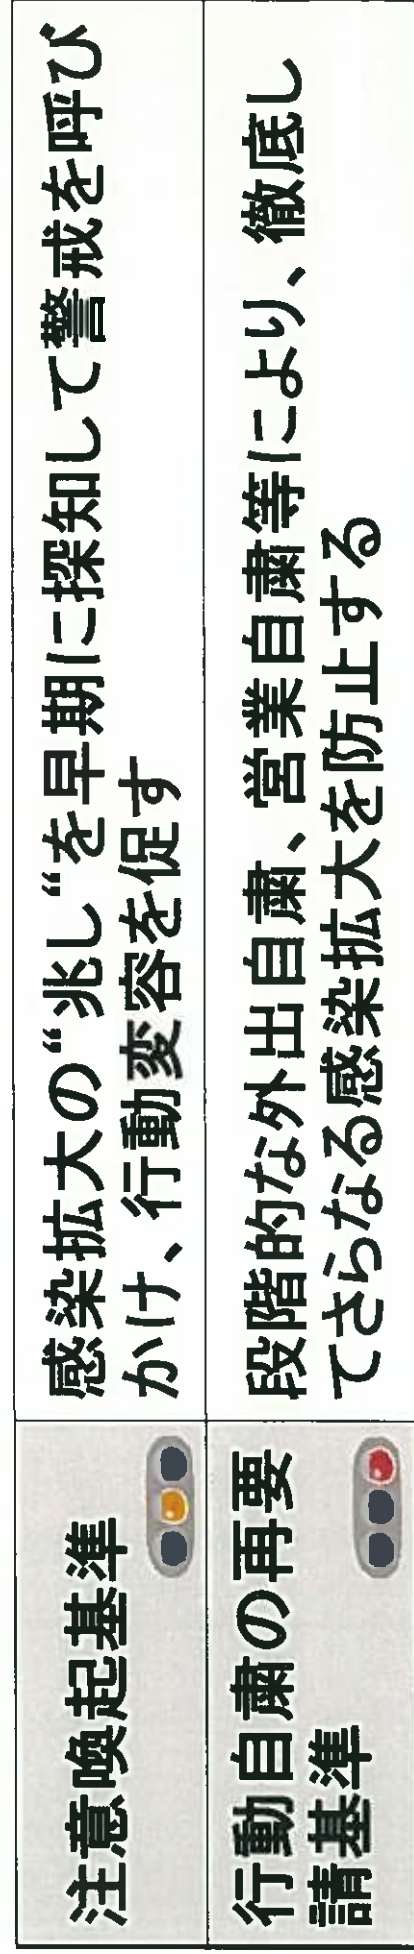 注意喚起基準
感染拡大の“兆し“を早期に探知して警戒を呼び
かけ、行動変容を促す
行動自粛の再要
請基準
段階的な外出自粛、営業自粛等により、徹底し
てさらなる感染拡大を防止する